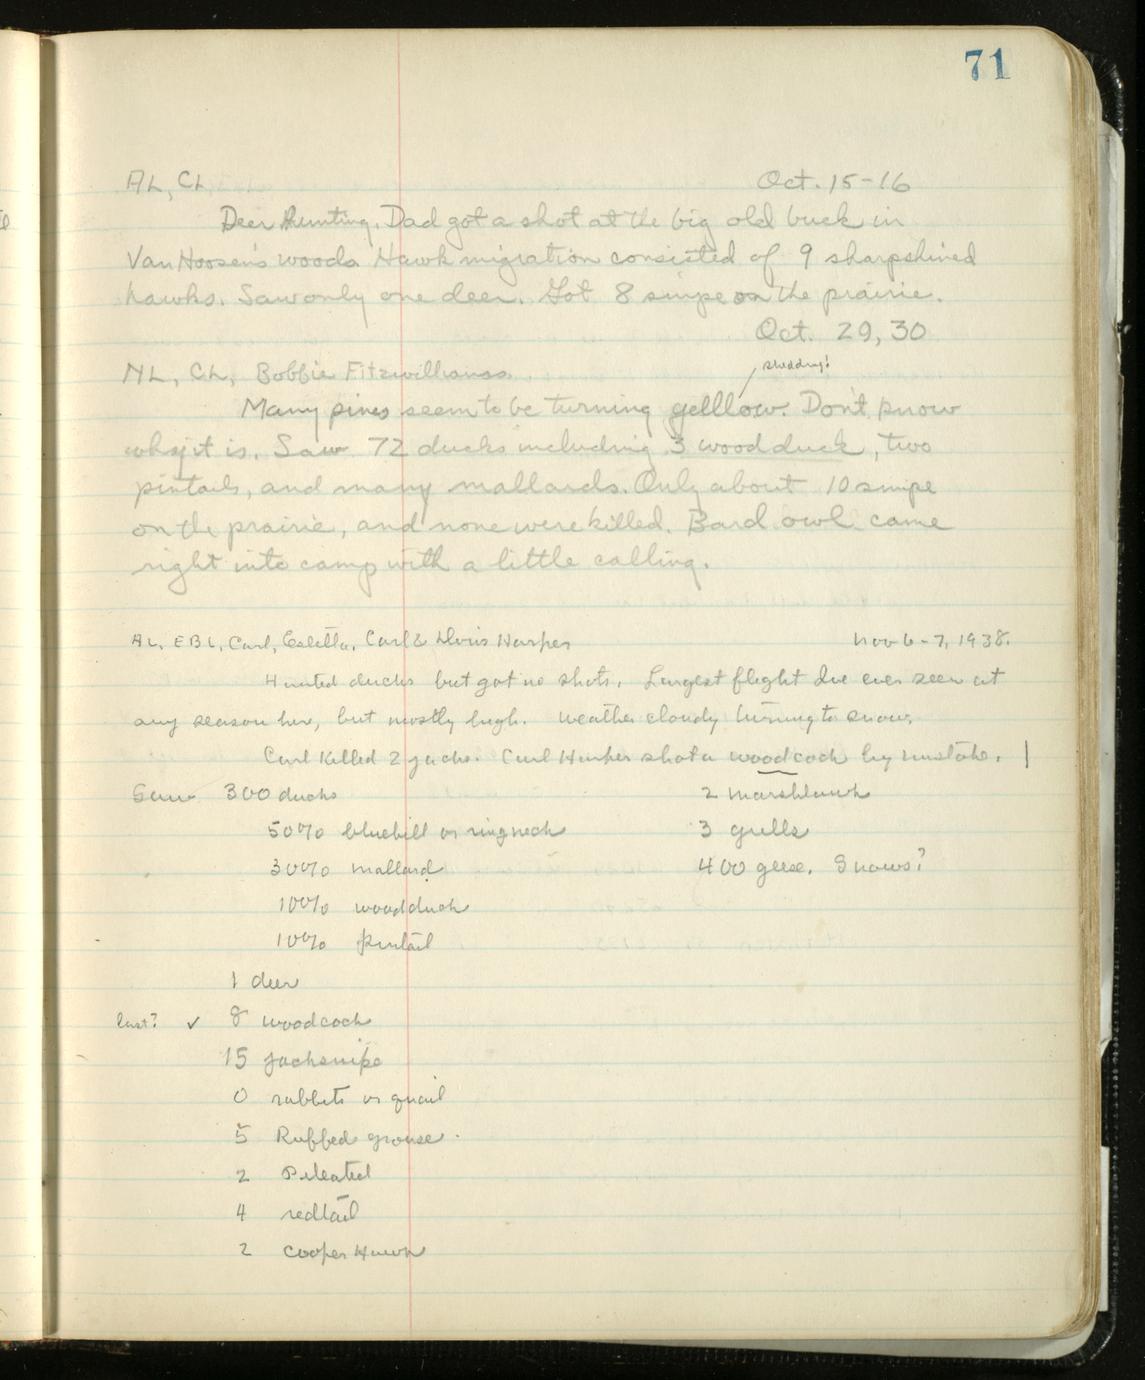 71
AL, CL Oct. 15-16
Deer Hunting. Dad got a shot at the big old buck in
Van Hoosen's woods Hawk migration consisted of 9 sharpshined
hawks. Saw only one deer. Got 8 snipe on the prairie.
Oct. 29, 30
NL, CL, Bobbie Fitzwilliams
shedding!
Many pines seem to be turning gelllow. Don't know
why it is. Saw 72 ducks including 3 wood duck, two
pintails, and many mallards. Only about 10 snipe
on the prairie, and none were killed. Bard owl came
right into camp with a little calling.
AL, EBL, Carl, Estella, Carl & Doris Harper Nov 6-7, 1938.
Hunted ducks but got no shots. Largest flight I've ever seen at
any season here, but mostly high. Weather cloudy turning to snow.
Carl Killed 2 jacks. Carl Harper shot a woodcock by mistake.
Saw 300 ducks 2 marshhawk
50% bluebill or ringneck 3 gulls
30% mallard 400 geese. Snows?
10% woodduck
10% pintail
1 deer
last? ✓ 8 woodcock
15 jacksnipe
0 rabbits or quail
5 Ruffed grouse.
2 Pileated
4 redtail
2 Cooper Hawk